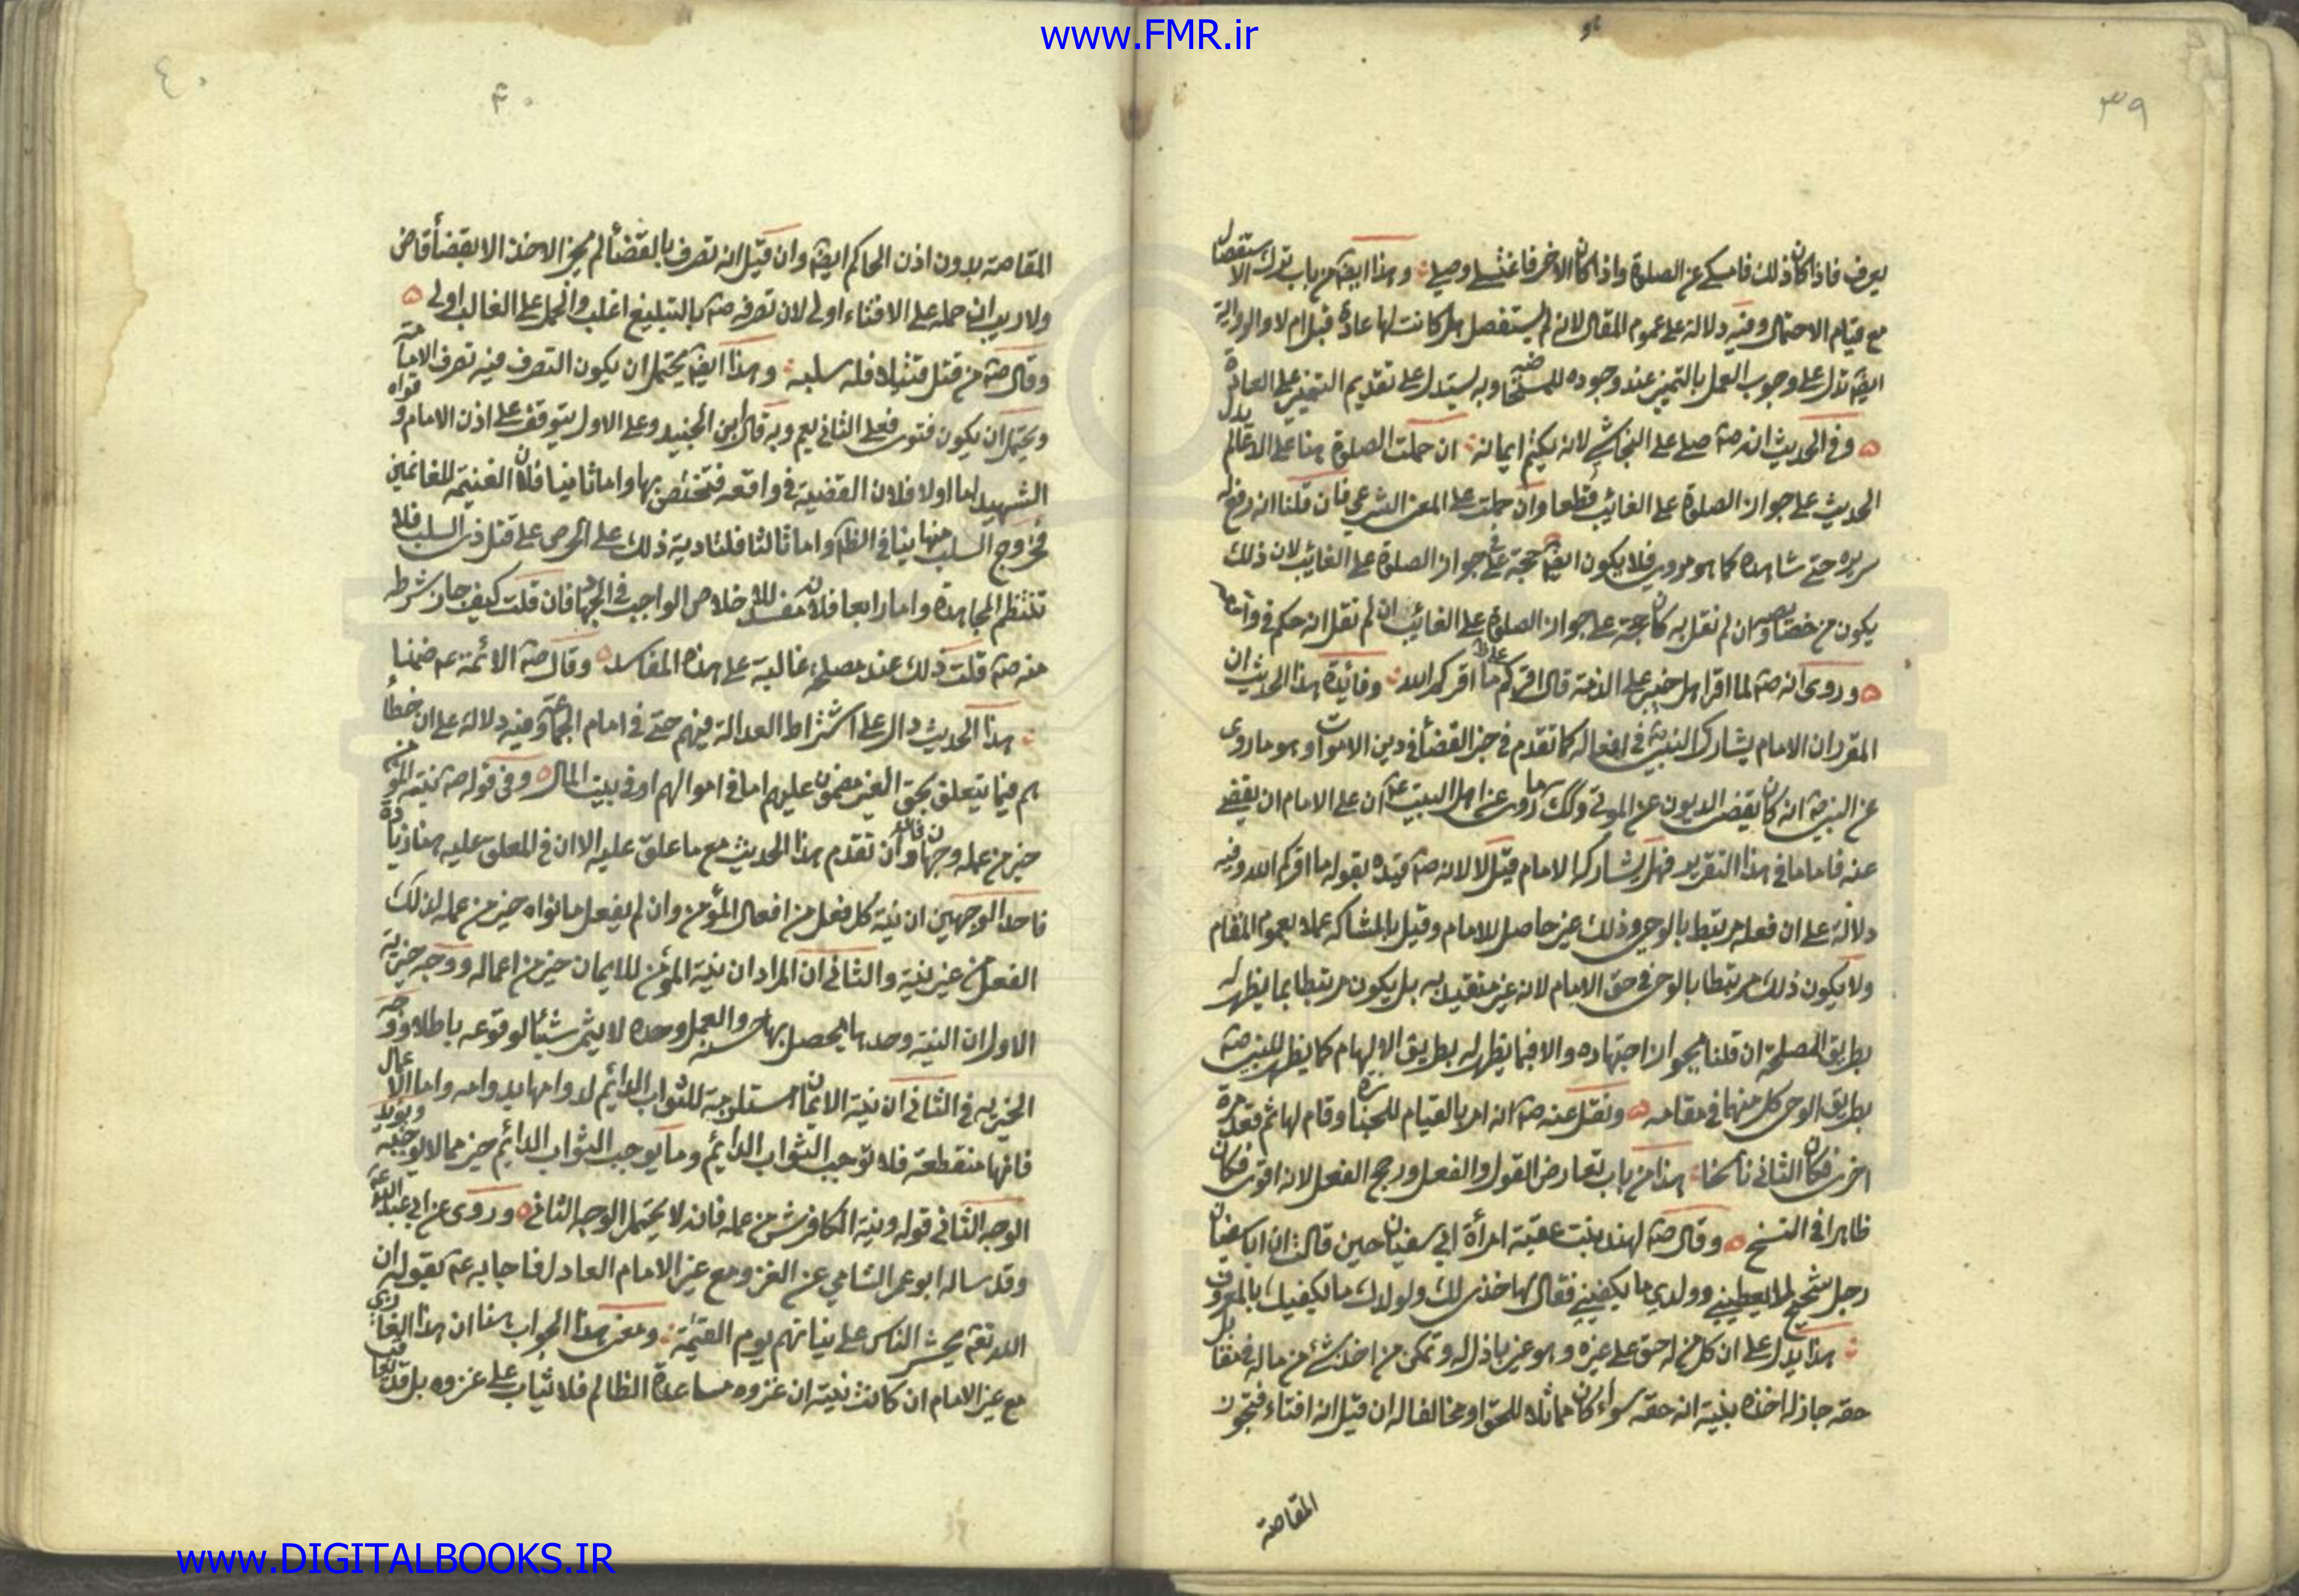 www.FMR.ir
٣٩
يعرف فاذا كان ذلك فامسكي عن الصلوة واذا كان الاخر فاغتسلي وصلي وهذا ايضا من باب ترك الاستفصال
مع قيام الاحتمال وفيه دلالة على عموم المقال لانه لم يستفصل هل كانت لها عادة قبل ام لا والرواية
ايضا تدل على وجوب العمل بالتميز عند وجوده للمستحاضة وبه يستدل على تقديم التميز على العادة
وفي الحديث انه صه صلى على النجاشي لانه يكتم ايمانه ان حملت الصلوة هنا على الدعا لم يدل
الحديث على جواز الصلوة على الغائب قطعا وان حملت على المعنى الشرعي فان قلنا انه رفع له
سريره حتى شاهده كما هو مروي فلا يكون ايضا حجة على جواز الصلوة على الغائب لان ذلك
يكون من خصايصه وان لم نقل به كان حجة على جواز الصلوة على الغائب ان لم نقل انه حكم في واقعة
وروى انه صه لما اقر اهل خيبر على الذمة قال اقركم على ما اقركم الله وفائدة هذا الحديث ان
المقرر ان الامام يشارك النبي صه في افعاله كما تقدم في خبر القضا في دين الاموات وهو ما روى
عن النبي صه انه كان يقضى الديون عن الموتى وكذلك ما روى عن اهل البيت عه ان على الامام ان يقضي
عنه فاما ما في هذا التقرير فهل يشاركه الامام قيل لا لانه صه قيده بقوله ما اقركم الله وفيه
دلالة على ان فعله مرتبط بالوحي وذلك غير حاصل للامام وقيل بالمشاركة عملا بعموم المقام
ولا يكون ذلك مرتبطا بالوحي في حق الامام لانه غير متقيد به بل يكون مرتبطا بما يظهر له
بطريق المصلحة ان قلنا بجواز اجتهاده والا فبما يظهر له بطريق الالهام كما يظهر للنبي صه
بطريق الوحي كل منهما في مقامه ونقل عنه صه انه امر بالقيام للجنازة وقام لها ثم قعد مرة
اخرى فكان الثاني ناسخا هذا من باب تعارض القول والفعل ورجح الفعل لانه اقوى فكان
ظاهرا في النسخ وقال صه لهند بنت عقبة امرأة ابي سفيان حين قالت ان ابا سفيان
رجل شحيح لا يعطيني وولدي ما يكفيني فقال لها خذي لك ولولدك ما يكفيك بالمعروف
هذا يدل على ان كل من له حق على غيره وهو غير باذل له وتمكن من اخذ شئ من ماله بقدر
حقه جاز له اخذه بنية انه حقه سواء كان مماثلا للحق او مخالفا له ان قيل انه افتاء فتجوز
المقاصة
٤٠
٤٠
المقاصة بدون اذن الحاكم ايضا وان قيل انه تصرف بالقضأ لم يجز الاخذ الا بقضأ قاض
ولا ريب ان حمله على الافتاء اولى لان تصرفه صه بالتبليغ اغلب والحمل على الغالب اولى
وقال صه من قتل قتيلا فله سلبه وهذا ايضا يحتمل ان يكون التصرف فيه تصرف الامامة
ويحتمل ان يكون فتوى فعلى الثاني يعم وبه قال ابن الجنيد وعلى الاول يتوقف على اذن الامام وقواه
الشهيد اما اولا فلان القضية في واقعة فتختص بها واما ثانيا فلان الغنيمة للغانمين
فخروج السلب منها ينافي الظاهر واما ثالثا فلتادية ذلك على الحرص على قتل ذى السلب فلا
تنتظم المجاهدة واما رابعا فلانه مفسد للاخلاص الواجب في الجهاد فان قلت كيف جاز شرطه
منه صه قلت ذلك عند مصلحة غالبة على هذه المفاسد وقال صه الائمة عه ضمنا
هذا الحديث دال على اشتراط العدالة فيهم حتى في امام الجماعة وفيه دلالة على ان خطأ
هم فيما يتعلق بحق الغير مضمون عليهم اما في اموالهم او في بيت المال وفي قوله صه نية المؤمن
خير من عمله وجهان وان تقدم هذا الحديث مع ما علق عليه الا ان في المعلق عليه هنا زيادة
فاحد الوجهين ان نية كل فعل من افعال المؤمن وان لم يفعل ما نواه خير من عمله لذلك
الفعل من غير نية والثاني ان المراد ان نية المؤمن للايمان خير من اعماله ووجه خيرية
الاول ان النية وحدها يحصل بها حسنة والعمل وحده لا يثمر شيئا لوقوعه باطلا ووجه
الخيرية في الثاني ان نية الايمان مستلزمة للثواب الدائم لدوامها بدوامه واما الاعمال
فانها منقطعة فلا توجب الثواب الدائم وما يوجب الثواب الدائم خير مما لا يوجبه ويؤيد
الوجه الثاني قوله ونية الكافر شر من عمله فانه لا يحتمل الوجه الثاني وروى عن ابي عبد الله عه
وقد ساله ابو عمر الشامي عن الغزو مع غير الامام العادل فاجابه عه بقوله ان
الله تعه يحشر الناس على نياتهم يوم القيمة ومعنى هذا الجواب هنا ان هذا الغازي
مع غير الامام ان كانت نيته ان غزوه مساعدة الظالم فلا ثياب على غزوه بل
www.DIGITALBOOKS.IR